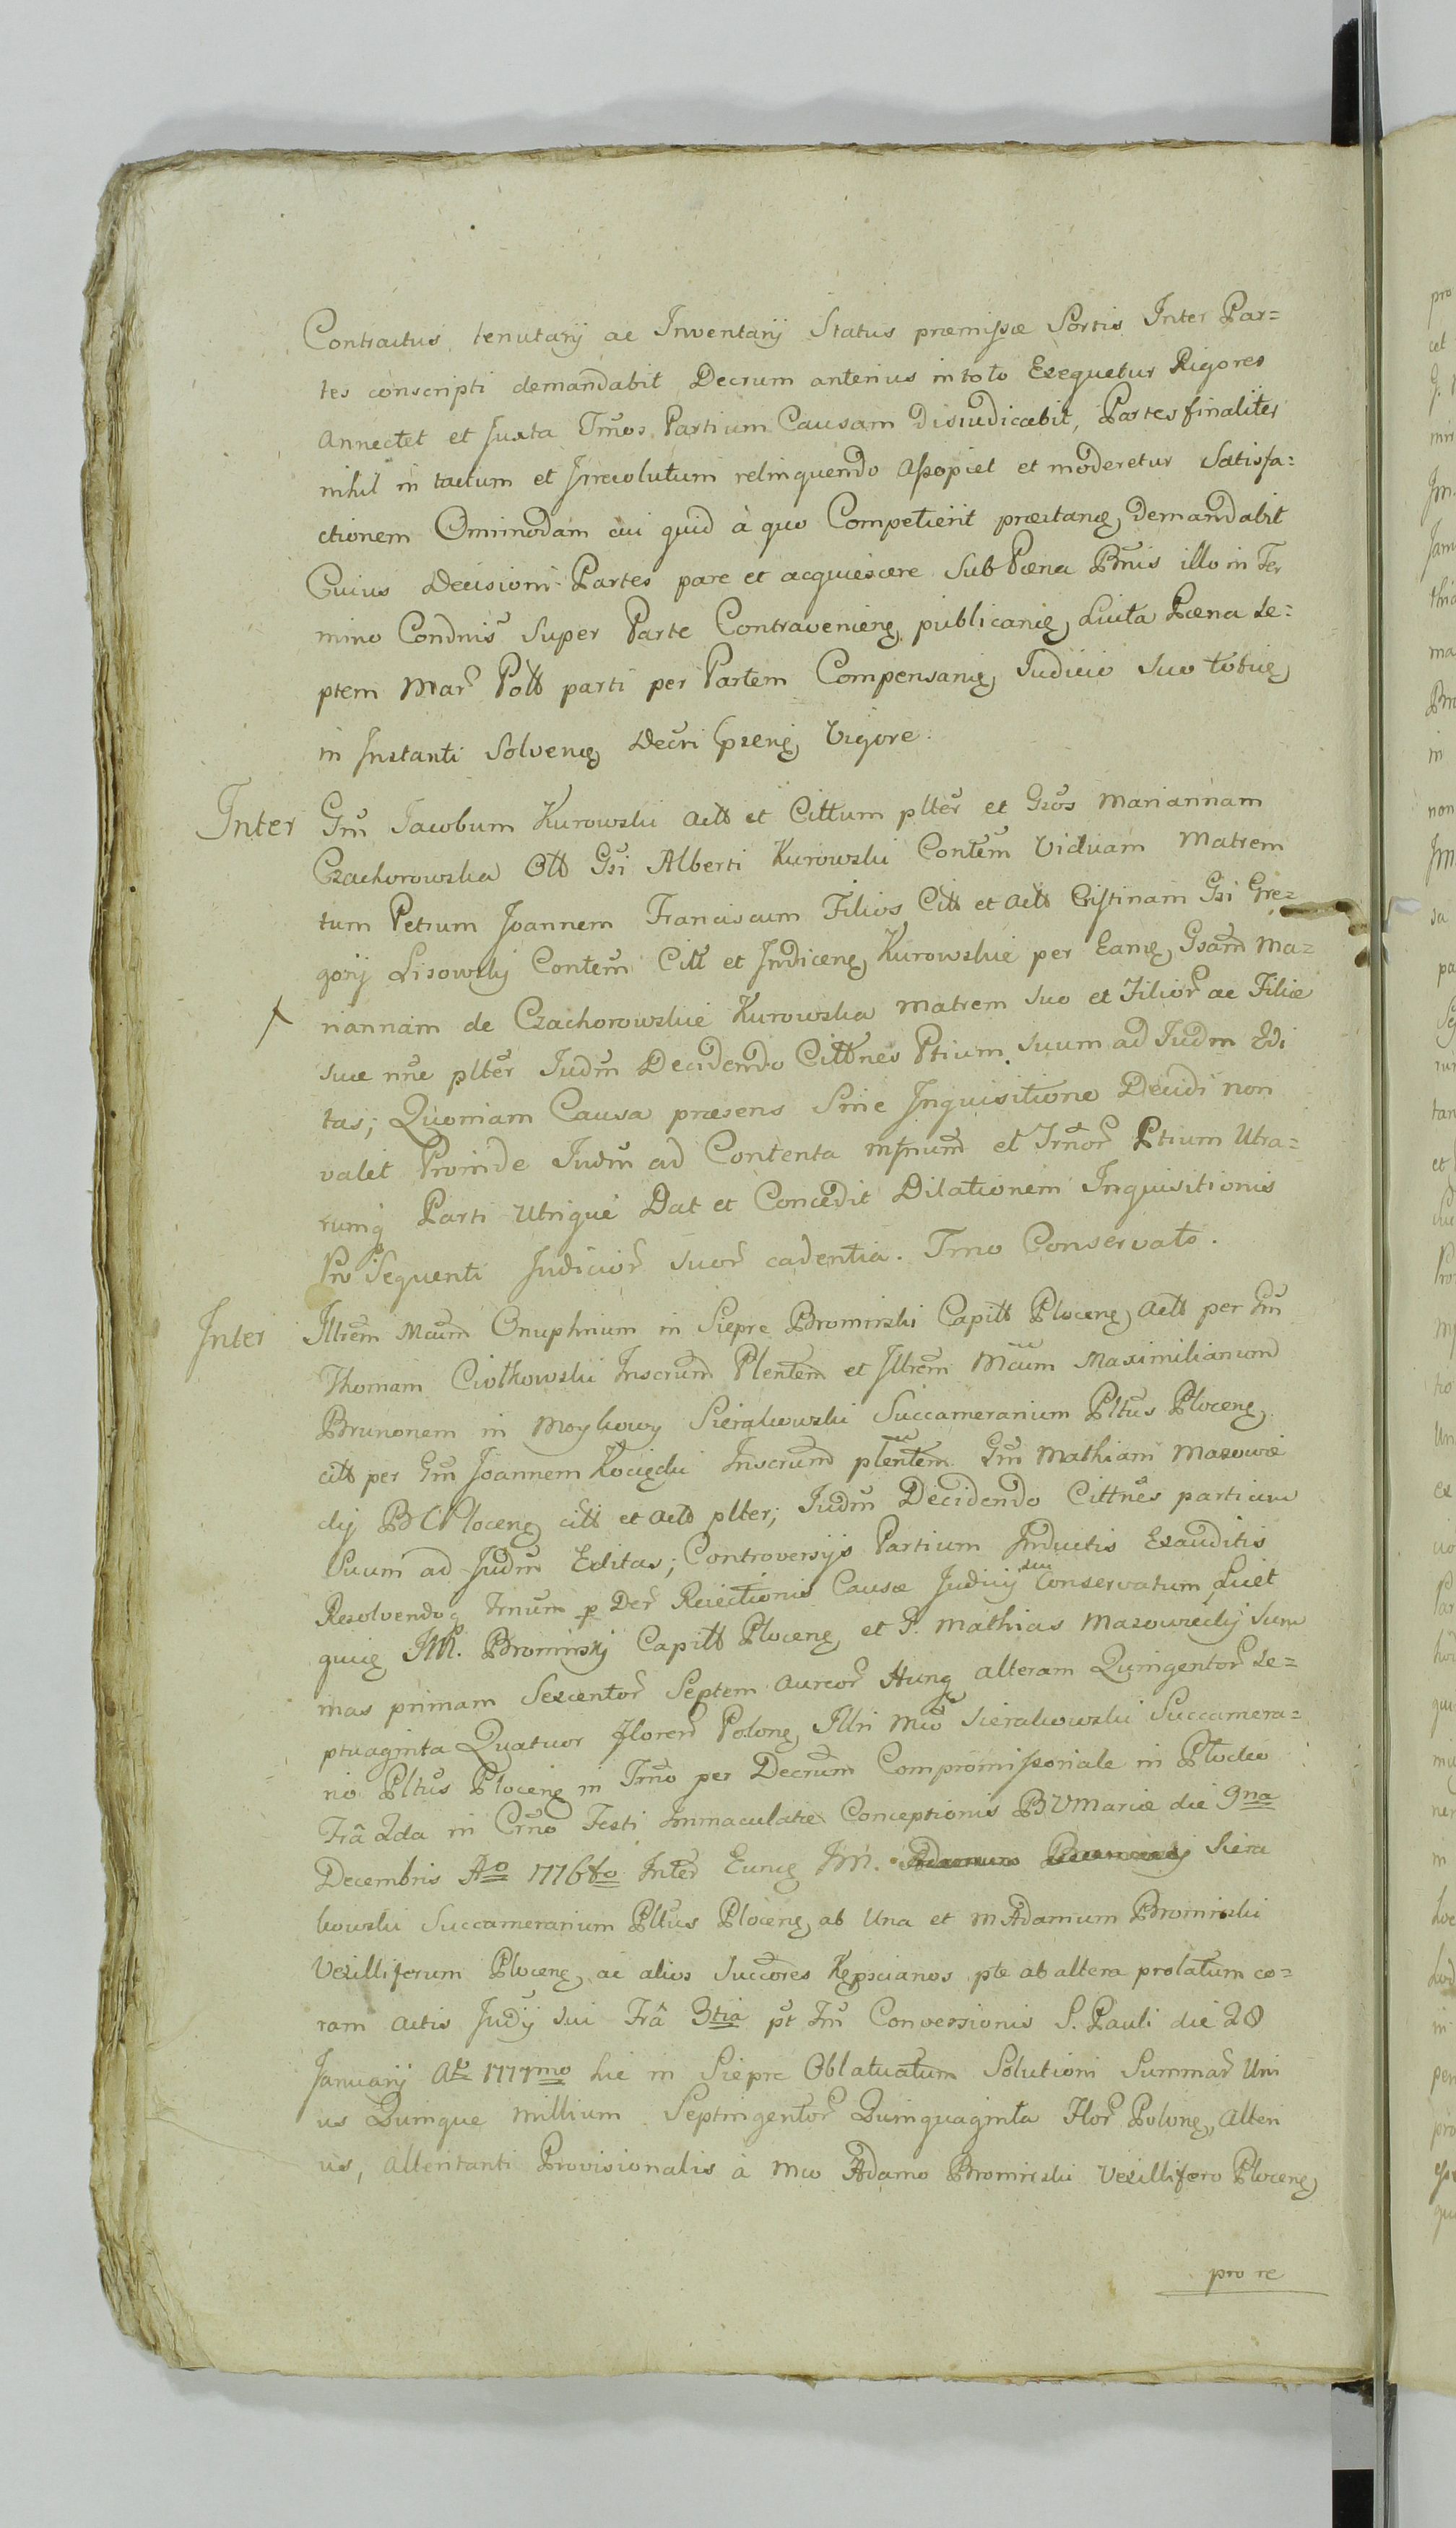 Contractus, tenutarÿ ac Inventarÿ Status præmissæ Sortis Inter Par=
tes conscripti demandabit Decrum anterius in toto Exequetur Rigores
annectet et Juxta Trmos Partium Causam Disiudicabit, Partes finaliter
nihil in tactum et Irrevolutum relinquendo assopiet et moderetur Satisfa=
ctionem Omnimodam cui quid à quo Competierit præstanđ demandabit
Cuius Decisioni Partes pare et acquiescere Sub Pæna Bnis illo in Ter
mino Condnis Super Parte Contravenienđ publicanđ Luita Pæna Se=
ptem Mar Poll parti per Partem Compensanđ Judicio Suo totiđ
in Instanti Solvenđ Decri przenđ Vigore.
Inter Gm Jacobum Kurowski actt et Cittum plter et Gsos Mariannam
Czachorowska Oll Gsi Alberti Kurowski Contem Viduam Matrem
tum Petrum Joannem Franciscum Filios Citt et actt Cristinam Gsi Gre=
gorÿ Lisowsky Contem Citt et Indicenđ Kurowskie per Eanđ Gsam Ma=
riannam de Czachorowskie Kurowska Matrem Suo et Filior ac Filiæ
Suæ nne plter Judm Decidendo Cittnes Ptium Suum ad Judm Edi
tas; Quoniam Causa præsens Sine Inquisitione Decidi non
valet Proinde Judm ad Contenta mfnium et Trmor Ptium Utra=
rumq Parti Utrique Dat et Concedit Dilationem Inquisitionis
Pro Sequenti Judicior Suor cadentia. Trmo Conservato.
Inter Illrem Mcum Onuphrium in Siepre Bromirski Capitt Plocenđ actt per Gm
Thomam Ciołkowski Inscrum Plentem et Illrem Mcum Maximilianum
Brunonem in Moykowy Sierakowski Succamerarium Pltus Plocenđ
citt per Gm Joannem Kocięcki Inscrum plentem Gm Mathiam Mazowie
cky BCPlocenđ citt et actt plter; Judm Decidendo Cittnes partium
Suum ad Judm Editas; Controversÿs Partium Inductis Exauditis
Resolvendoq Trnum p Decr Reiectionis Causæ Judicÿ sui Conservatum Licet
quiđ JM. Bromirskÿ Capitt Plocenđ et P. Mathias Mazowieckÿ Sum
mas primam Sexcentor Septem aureor Hung alteram Quingentor Se=
ptuaginta Quatuor floren Polonđ Illri Mco Sierakowski Succamera=
rio Pltus Plocenđ in Trmo per Decrum Compromissoriale in Plocko
Frâ 2da in Crno Festi Immaculatæ Conceptionis BVMariæ die 9na
Decembris Ao 1776to Inter Eunđ JM. Siera
kowski Succamerarium Pltus Plocenđ ab Una et M Adamum Bromirski
Vexilliferum Plocenđ ac alios Succores Kępscianos pte ab altera prolatum co=
ram actis Judÿ Sui Frâ 3tia pt Fm Conversionis S. Pauli die 28
Januarÿ Ao 1777mo hic in Siepre Oblatuatum Solutioni Summar Uni
us Quinque millium Septingentor Quinquaginta Flor Polonđ, alteri
us, alteritanti Provisionalis à Mco Adamo Bromirski Vexillifero Plocenđ
pro re